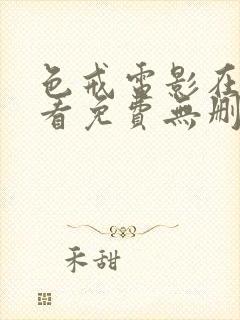 色戒雷影在
看免費無删
禾甜